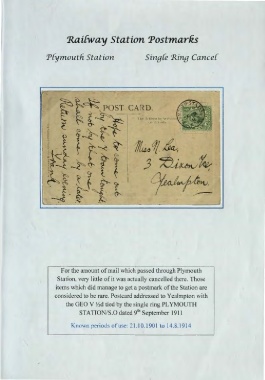 Railway Station Postmarks
Plymouth Station Single Ring Cancel
POST CARD.
Hope to come out
by the 7 train tonight
If not by that one
shall come by a later
Return Sunday evening
Miss N. Lea
3 Dixon Tce
Yealmpton
For the amount of mail which passed through Plymouth
Station, very little of it was actually cancelled there. Those
items which did manage to get a postmark of the Station are
considered to be rare. Postcard addressed to Yealmpton with
the GEO V ½d tied by the single ring PLYMOUTH
STATION/S.O dated 9th September 1911
Known periods of use: 21.10.1901 to 14.8.1914